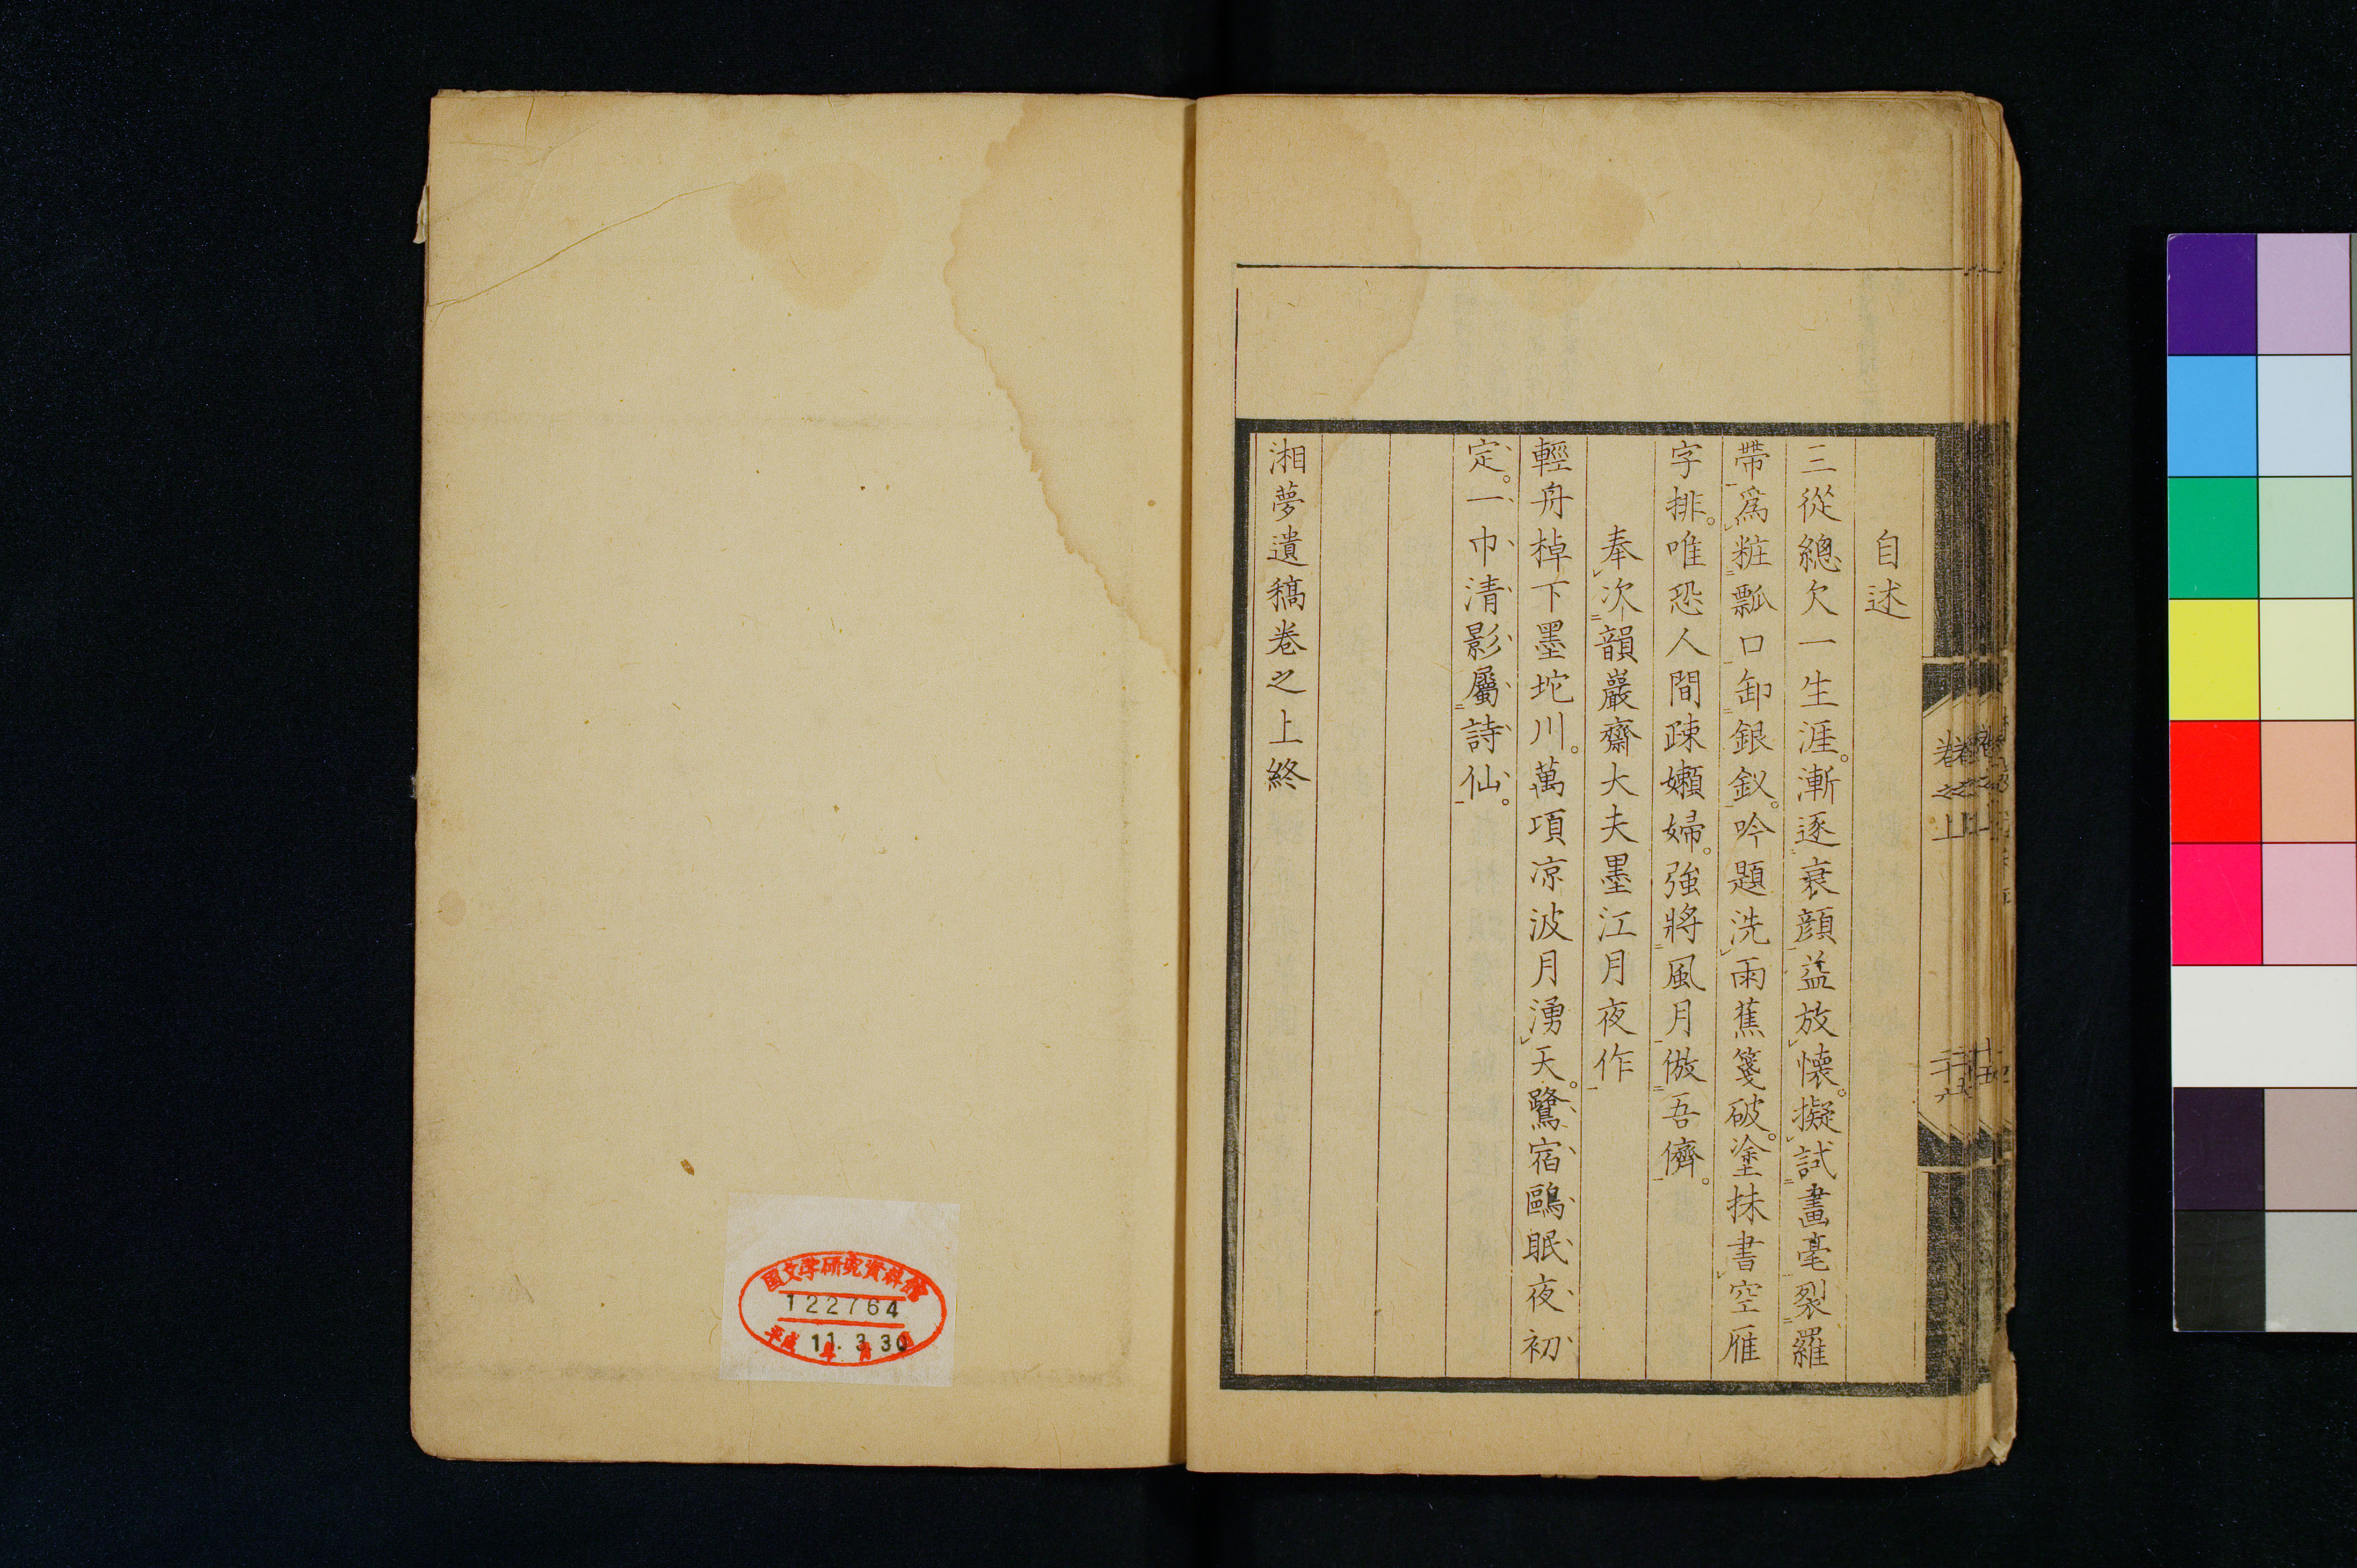 自述
三從總欠一生涯。漸逐衰顔益放懷。擬試畫毫裂羅
帶爲粧瓢口卸銀釵。吟題洗雨蕉箋破。塗抹書空雁
字排。唯恐人間疎嬾婦。強將風月倣吾儕。
奉次韻巖齋大夫墨江月夜作
輕舟棹下墨坨川。萬項凉波月湧天。鷺宿鷗眠夜初
定。一巾清影屬詩仙。
湘夢遺稿卷之上終
卷之上
二十六
国文学研究資料館
122764
平成 11. 3 30
年 月